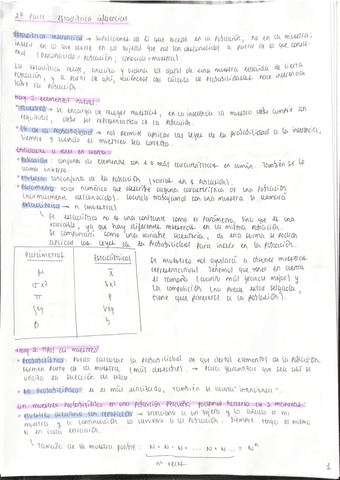 2ª Parte: Estadística inferencial
Estadística inferencial → suposiciones de lo que sucede en la población, no en la muestra;
inferir en lo que ocurre en los sujetos que son desconocidos a partir de lo que
(desconocido = población; conocido = muestra).
La estadística recoge, analiza y los datos de una muestra extraída de cierta
población, y a partir de ahí, valiéndose del cálculo de probabilidades hace inferencias
sobre la población.
Hay 2 elementos
Muestreo → se encarga de recoger muestras, en la inferencia la muestra debe cumplir con
requisitos, debe ser representativa de la población.
de la Probabilidad → nos permite aplicar las leyes de la probabilidad a la inferencia,
siempre y cuando el muestreo sea correcto.
a tener en cuenta
Población: conjunto de elementos con 1 o más características en común. También se le
llama universo.
Muestra: subconjunto de la población (varias en 1 población).
Parámetro: valor numérico que describe alguna característica de una población
(normalmente desconocido). Cuando trabajamos con una muestra se llamará
estadístico → n (muestra).
↳ El estadístico no es una constante como el parámetro, sino que es una
variable, ya que hay diferentes muestras en la misma población.
Se comportará como una variable aleatoria, de esa forma se podrán
aplicar las leyes de la probabilidad para inferir en la población.
Parámetros Estadísticos
μ x̄
σx² Sx²
π P
ρxy rxy
El muestreo nos ayudará a obtener muestras
representativas. Tenemos que tener en cuenta
el tamaño (cuanto más grande mejor) y
la composición (no puede estar sesgada,
tiene que parecerse a la población).
Hay 2 tipos de muestreo
• Probabilístico: puedo calcular la probabilidad de que ciertos elementos de la población
formen parte de la muestra (más .) → Para garantizar que sea así se
utiliza la selección al azar.
• No probabilístico: es el más utilizado, también se llama "intencional".
Un muestreo probabilístico en una población pequeña, podemos hacerlo de 2 maneras:
• Muestreo aleatorio con reposición → selecciono a un sujeto y lo añado a mi
muestra y a continuación lo devuelvo a la población. Siempre tengo el mismo
N en cada extracción.
↳ Tamaño de la muestra posible: N × N × N × ... N × N ... = Nⁿ
nº veces
1